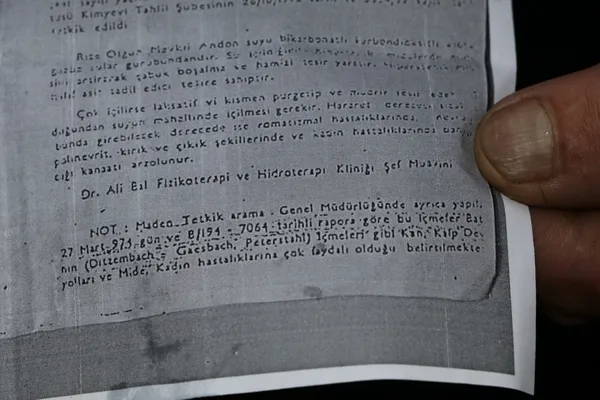 tüsü Kimyevi Tahlil Şubesinin
tetkik edildi
Rize Ozgun Mevkii Andon suyu bikarbonatlı karbondioksitli
gazlı sular gurubundandır. Su için
sini artırarak çabuk boşalma ve hamızı tesir yaratır.
asit tadil edici tesire sahiptir.
Çok içilirse laksatif vi kısmen pürgetip ve müdrir tesir eder
duğundan suyun mahallinde içilmesi gerekir. Hararet derecesi
bunda girebilecek derecede ise romatizmal hastalıklarında,
polinevrit, kırık ve çıkık şekillerinde ve kadın hastalıklarında
cığı kanaatı arzolunur.
Dr. Ali Bal Fizikoterapi ve Hidroterapi Kliniği Şef Muavini
NOT : Maden Tetkik arama Genel Müdürlüğünde ayrıca yapıl.
27 Mart 973 gün ve B/194 - 7064 tarihli rapora göre bu İçmeler Bat
nın (Dittzembach - Gaesbach, Peterstahl) İçmeleri gibi Kan, Kalp De
yolları ve Mide, Kadın hastalıklarına çok faydalı olduğu belirtilmekte